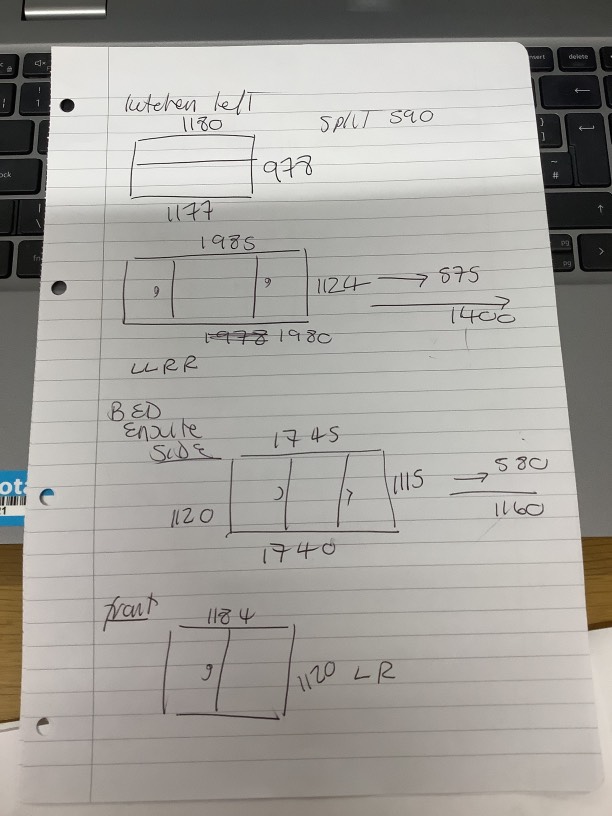 kitchen left
1180
SPLIT 590
978
1177
1985
1124 → 575
1400
1978 1980
LLRR
BED
Ensuite
SIDE
1745
1115 → 580
1160
1120
1740
front
1184
1120 LR